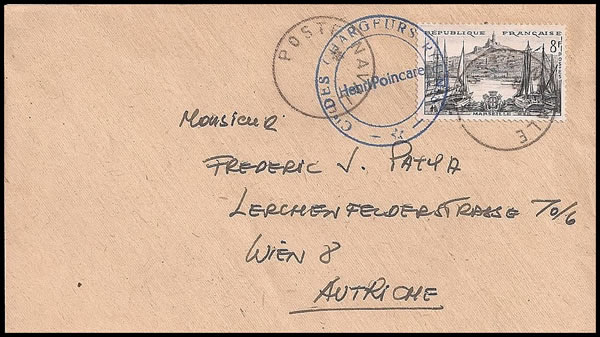 POSTE NAVALE
CIE DES CHARGEURS RÉUNIS
Henri Poincaré
RÉPUBLIQUE FRANÇAISE
8F
MARSEILLE
Monsieur
FREDERIC J. PATKA
LERCHENFELDERSTRASSE 70/6
WIEN 8
AUTRICHE